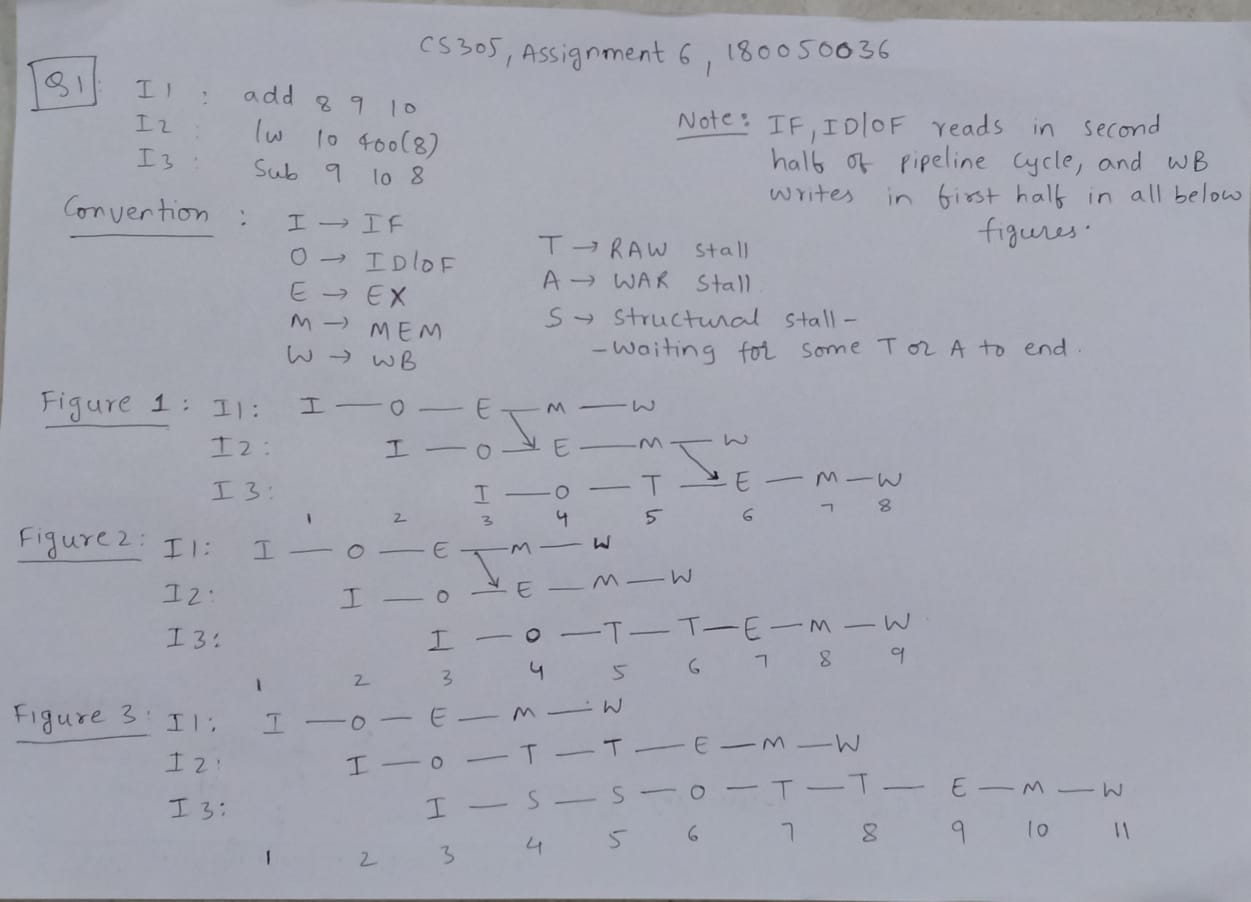 CS305, Assignment 6, 180050036
Q1
I1 : add 8 9 10
I2 : lw 10 400(8)
I3 : Sub 9 10 8
Note: IF, ID/OF reads in second
half of pipeline cycle, and WB
writes in first half in all below
figures.
Convention :
I → IF
O → ID/OF
E → EX
M → MEM
W → WB
T → RAW stall
A → WAR stall
S → structural stall -
- waiting for some T or A to end.
Figure 1 : I1: I — O — E — M — W
I2: I — O — E — M — W
I3: I — O — T — E — M — W
1 2 3 4 5 6 7 8
Figure 2: I1: I — O — E — M — W
I2: I — O — E — M — W
I3: I — O — T — T — E — M — W
1 2 3 4 5 6 7 8 9
Figure 3: I1: I — O — E — M — W
I2: I — O — T — T — E — M — W
I3: I — S — S — O — T — T — E — M — W
1 2 3 4 5 6 7 8 9 10 11